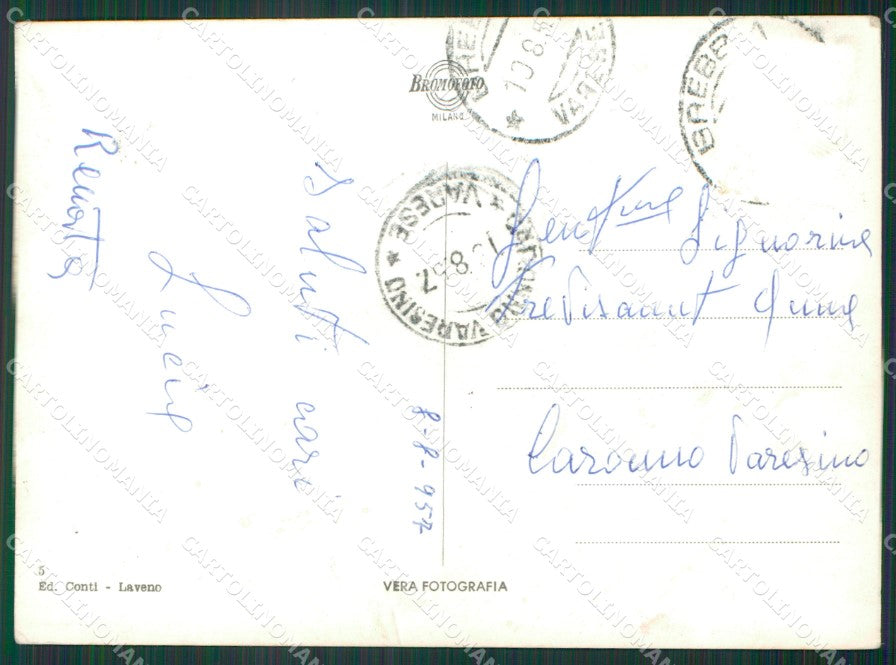 BROMOFOTO
MILANO
BREBBIA
VARESE
10.8.5
BREBBIA
CARONNO VARESINO
VARESE
8.57
8-8-957
Saluti cari
Lucia
Renata
Gent.me Signorine
Trevisani Anna
Caronno Varesino
5
Ed. Conti - Laveno
VERA FOTOGRAFIA
CARTOLINOMANIA